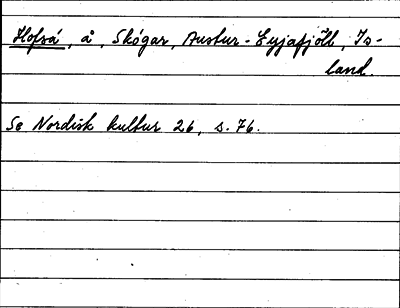 Hofsá, å, Skógar, Austur-Eyjafjöll, Is-
land.
Se Nordisk kultur 26, s. 76.